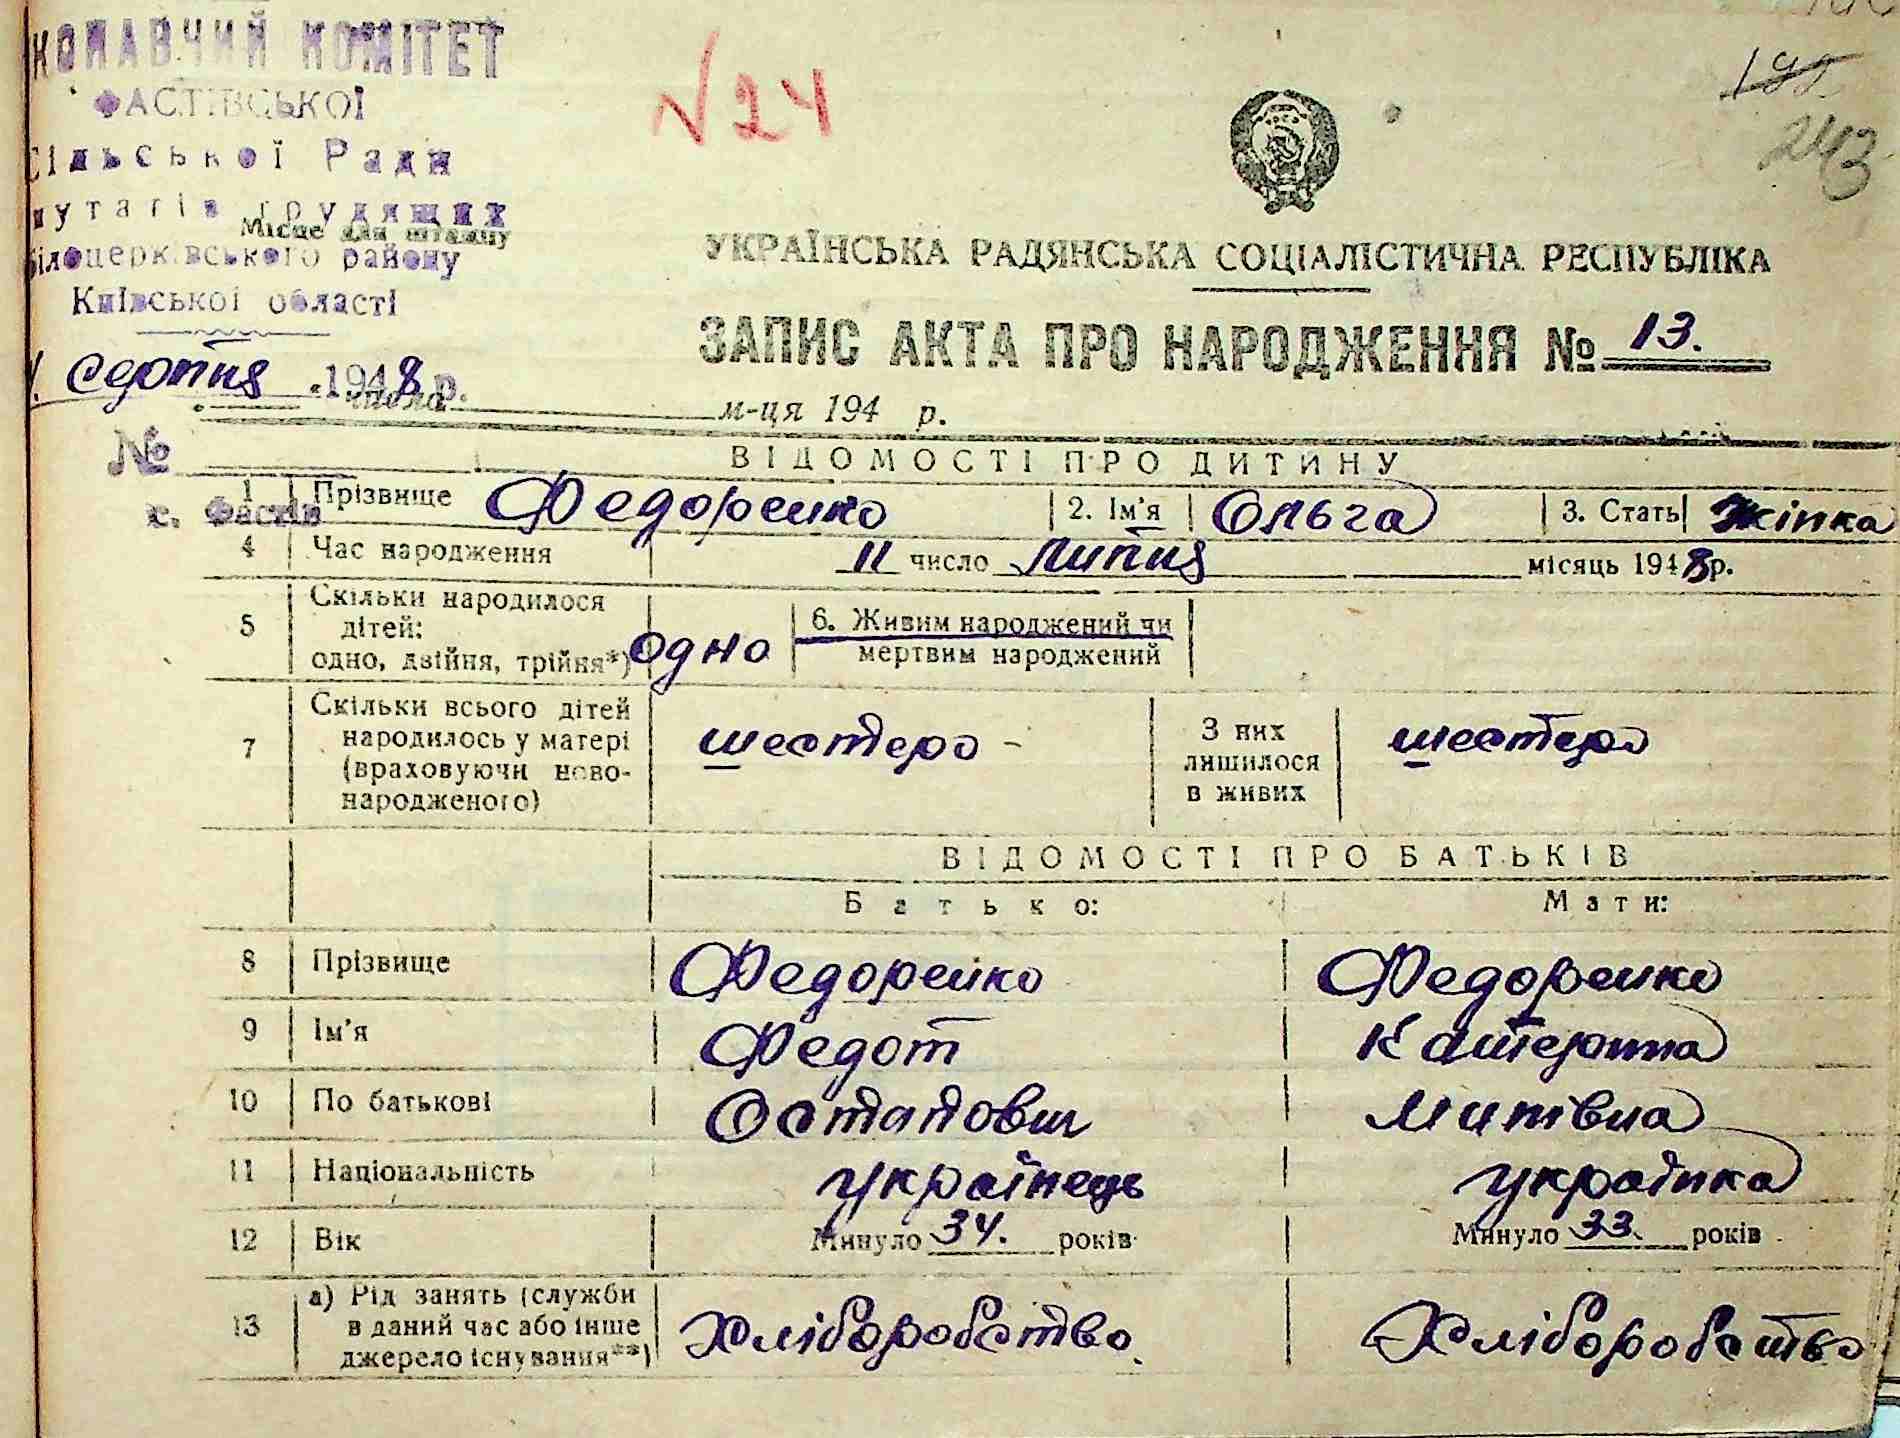 КОНАВЧИЙ КОМІТЕТ
ФАСТІВСЬКОЇ
Сільської Ради
путатів трудящих
Місце для штампу
Білоцерківського району
Київської області
серпня 1948 р.
числа м-ця 194 р.
№
с. Фастів
№ 24
243
УКРАЇНСЬКА РАДЯНСЬКА СОЦІАЛІСТИЧНА РЕСПУБЛІКА
ЗАПИС АКТА ПРО НАРОДЖЕННЯ № 13.
ВІДОМОСТІ ПРО ДИТИНУ
1 Прізвище Федоренко 2. Ім'я Ольга 3. Стать Жінка
4 Час народження 11 число липня місяць 1948 р.
5 Скільки народилося дітей: одно, двійня, трійня*) одно 6. Живим народжений чи мертвим народжений
7 Скільки всього дітей народилось у матері (враховуючи новонародженого) шестеро - З них лишилося в живих шестеро
ВІДОМОСТІ ПРО БАТЬКІВ
Батько: Мати:
8 Прізвище Федоренко Федоренко
9 Ім'я Федот Катерина
10 По батькові Остапович
11 Національність українець українка
12 Вік Минуло 34. років Минуло 33. років
13 а) Рід занять (служби в даний час або інше джерело існування**) Хліборобство Хліборобство